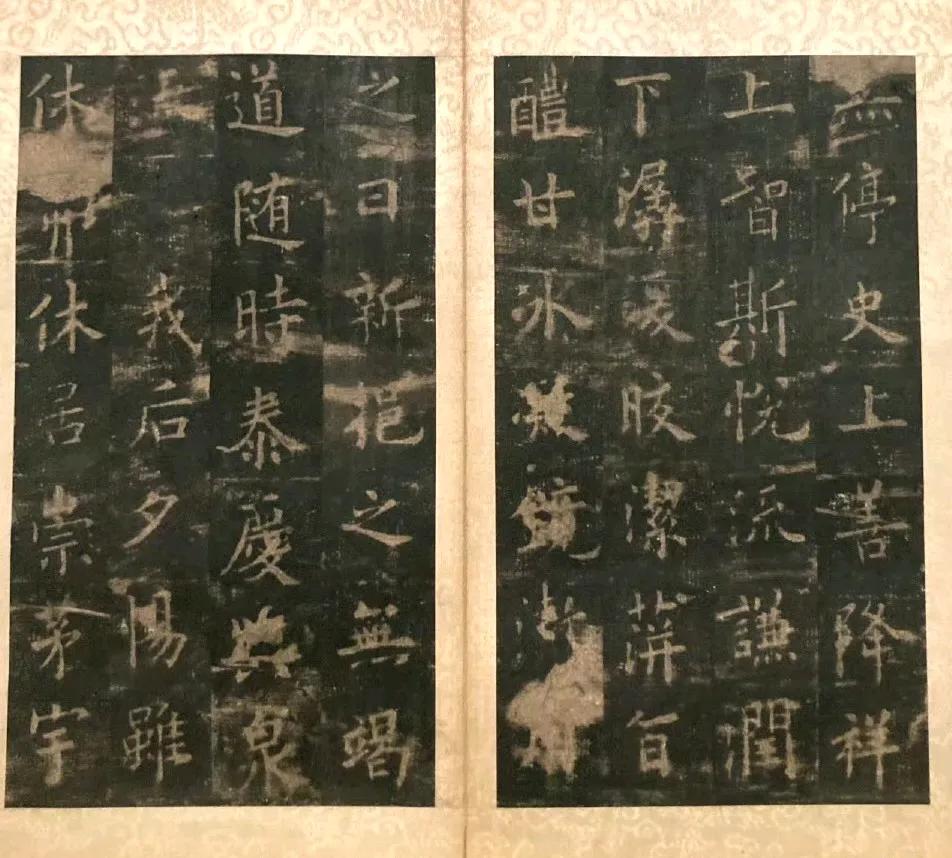 停史上善降祥
上智斯悦流謙潤
下潺湲皎潔蓱旨
醴甘冰凝鏡澈用
之日新挹之無竭
道随時泰慶與泉
我后夕惕雖
休弗休居崇茅宇